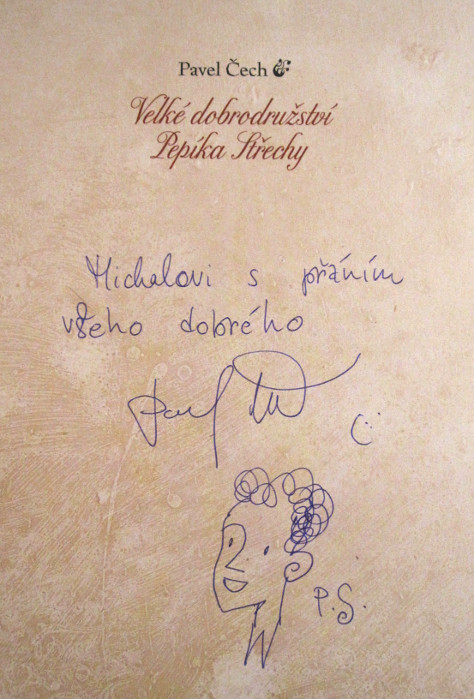 Pavel Čech &
Velké dobrodružství
Pepíka Střechy
Michalovi s přáním
všeho dobrého
Pavel
P.S.